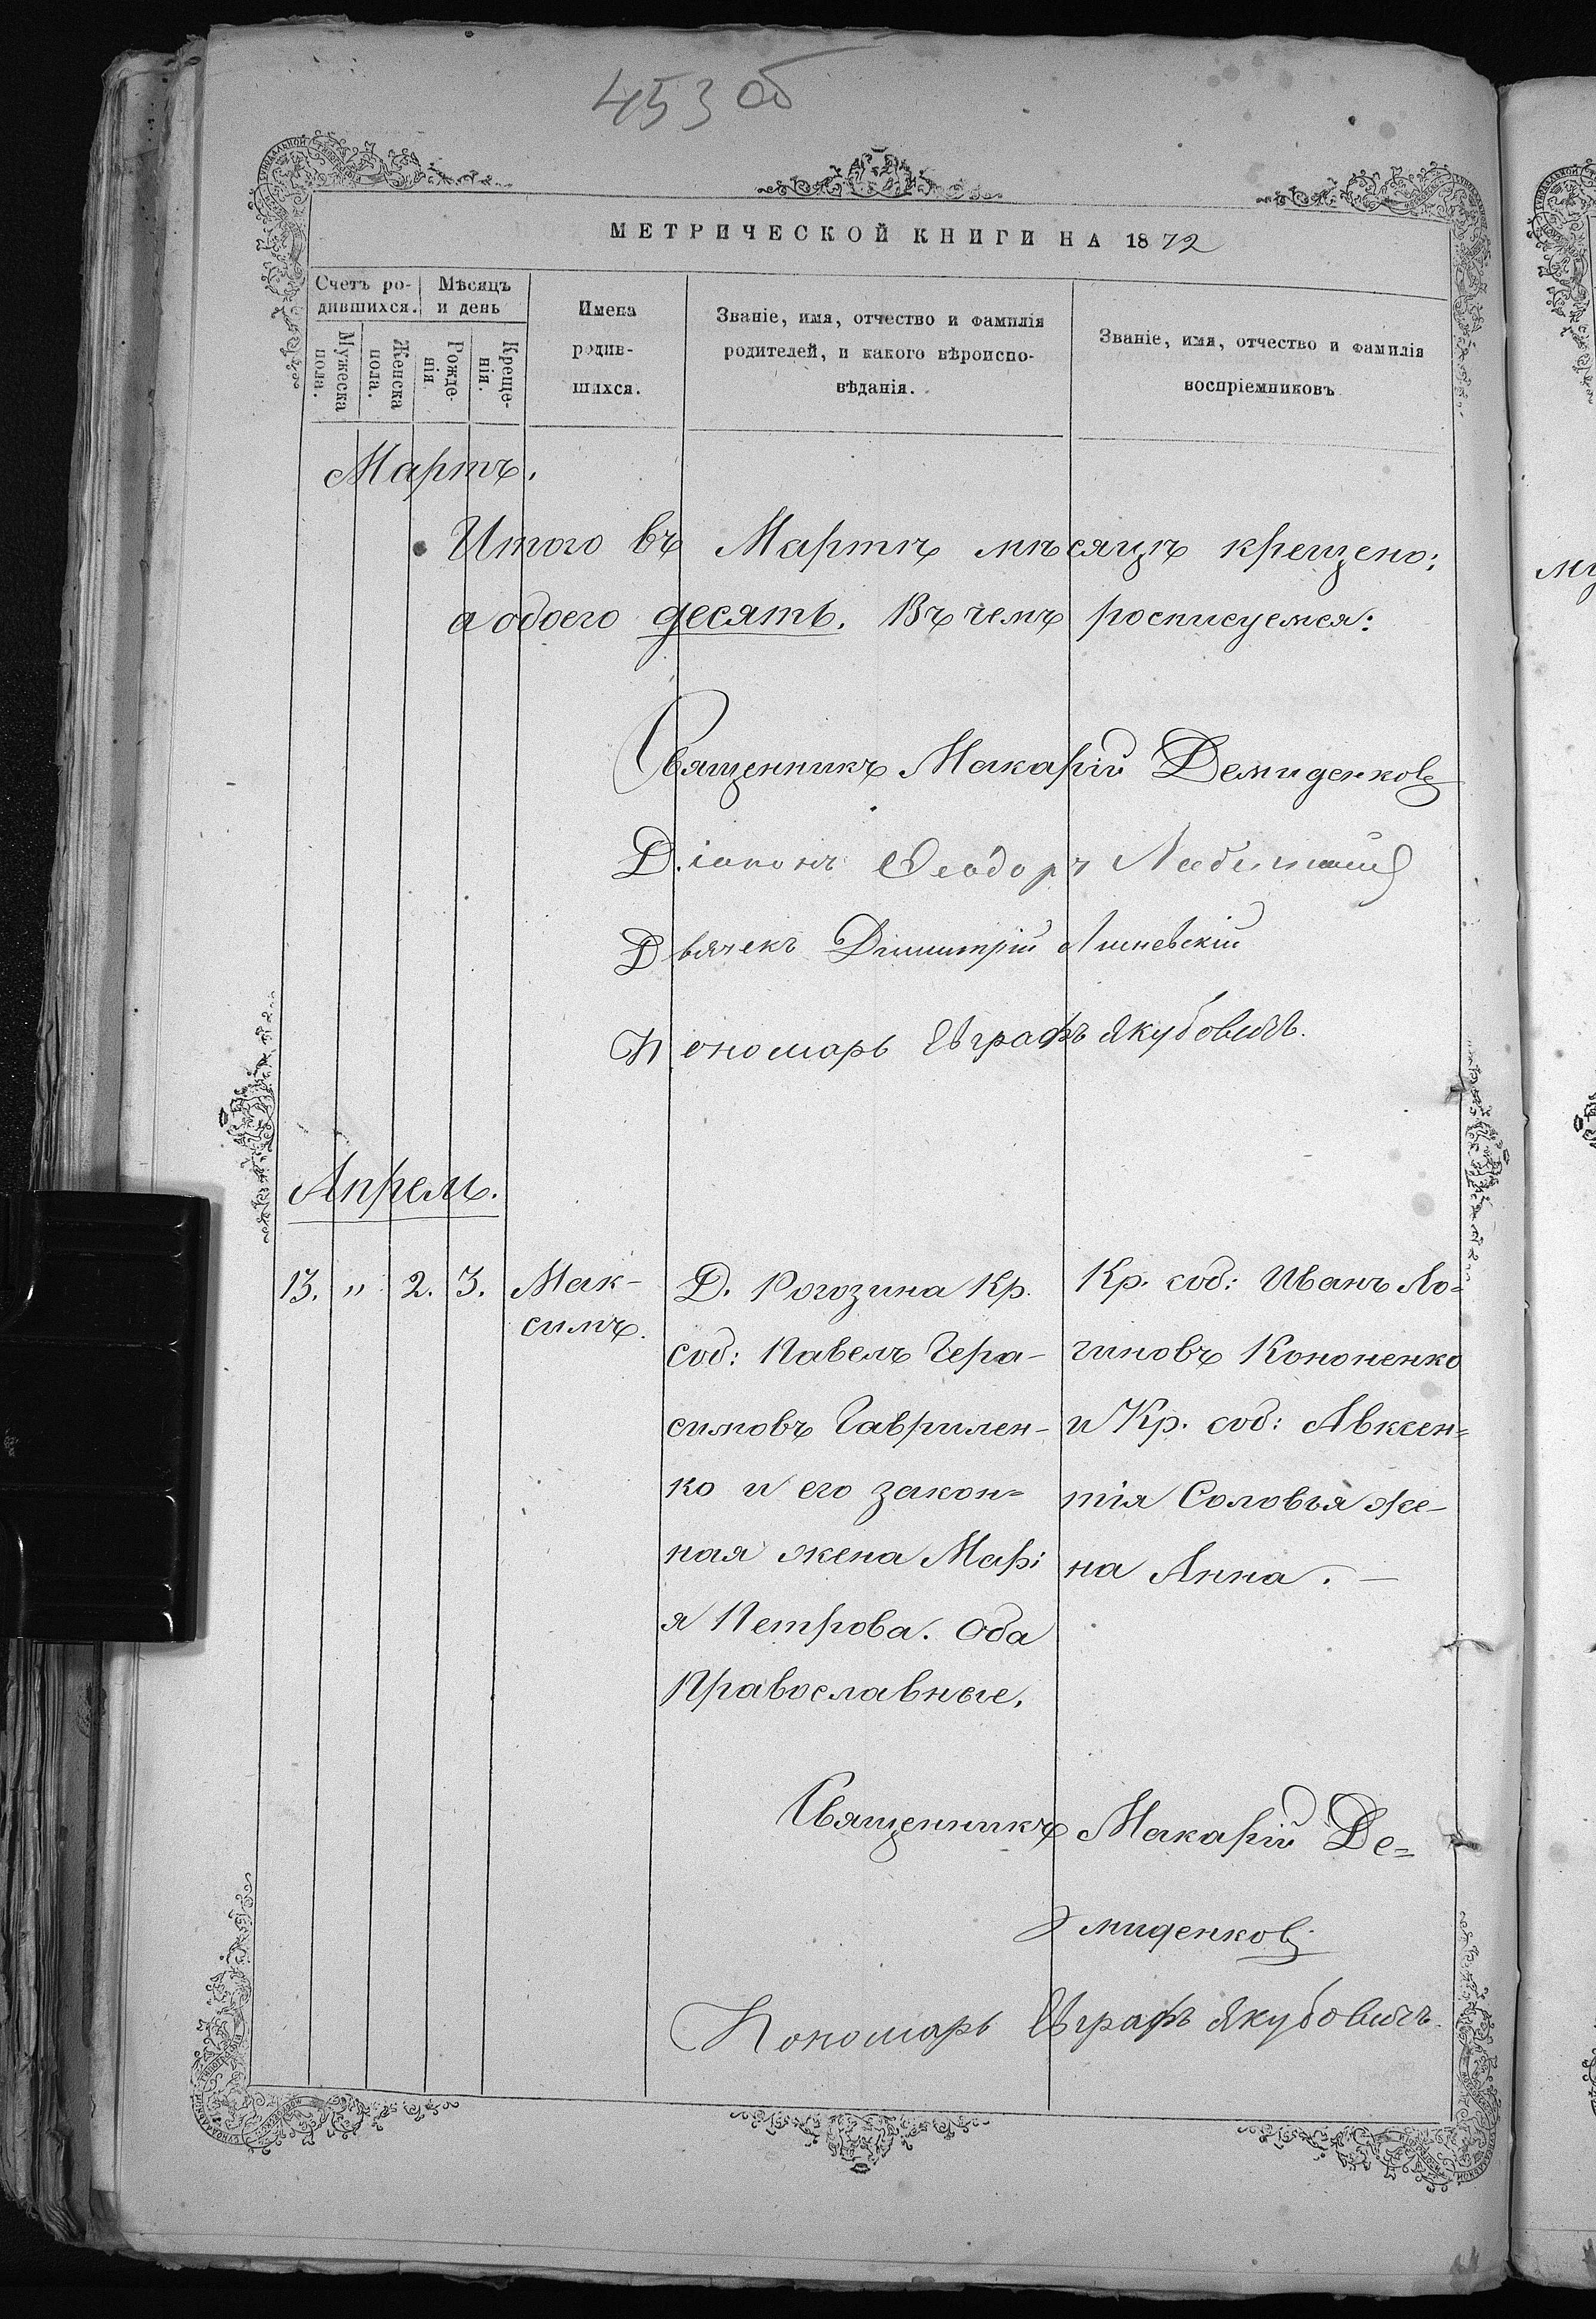 453 об
МЕТРИЧЕСКОЙ КНИГИ НА 1872
Счетъ ро-
дившихся.
Мѣсяцъ
и день
Мужеска
пола.
Женска
пола.
Рожде-
нія
Креще-
нія.
Имена
родив-
шихся.
Званіе, имя, отчество и фамилія
родителей, и какого вѣроиспо-
вѣданія.
Званіе, имя, отчество и фамилія
воспріемниковъ
Мартъ.
Итого въ Мартѣ мѣсяцѣ крещено;
а обоего десять. Въ чемъ росписуемся:
Священникъ Макарій Демиденковъ
Діаконъ Ѳеодоръ
Дьячекъ Димитрій Лишневскій
Пономарь Евграфъ Якубовичъ.
Апрель.
13. " 2. 3.
Мак-
симъ.
Д. Рогозина Кр.
соб: Павелъ Гера-
симовъ Гаврилен-
ко и его закон=
ная жена Марі
я Петрова. Оба
Православные.
Кр. соб: Иванъ Ло=
гиновъ Кононенко
и Кр. соб: Авксен=
тія Соловья же-
на Анна. —
Священникъ Макарій Де=
миденковъ
Пономарь Евграфъ Якубовичъ.